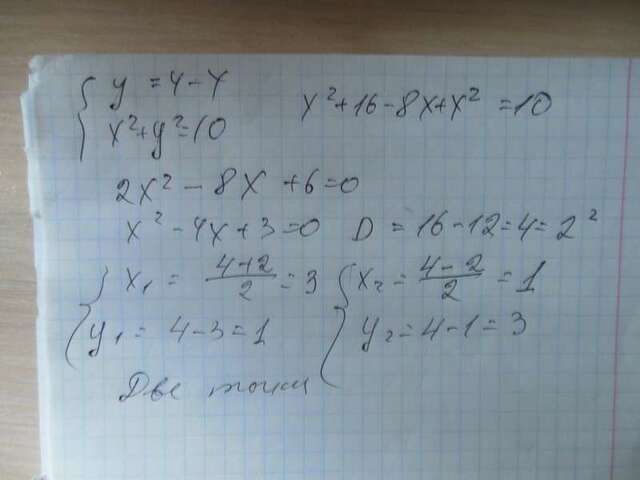 { y = 4 - x
x² + y² = 10
x² + 16 - 8x + x² = 10
2x² - 8x + 6 = 0
x² - 4x + 3 = 0 D = 16 - 12 = 4 = 2²
{ x₁ = (4+2)/2 = 3 { x₂ = (4-2)/2 = 1
y₁ = 4 - 3 = 1 y₂ = 4 - 1 = 3
Две точки